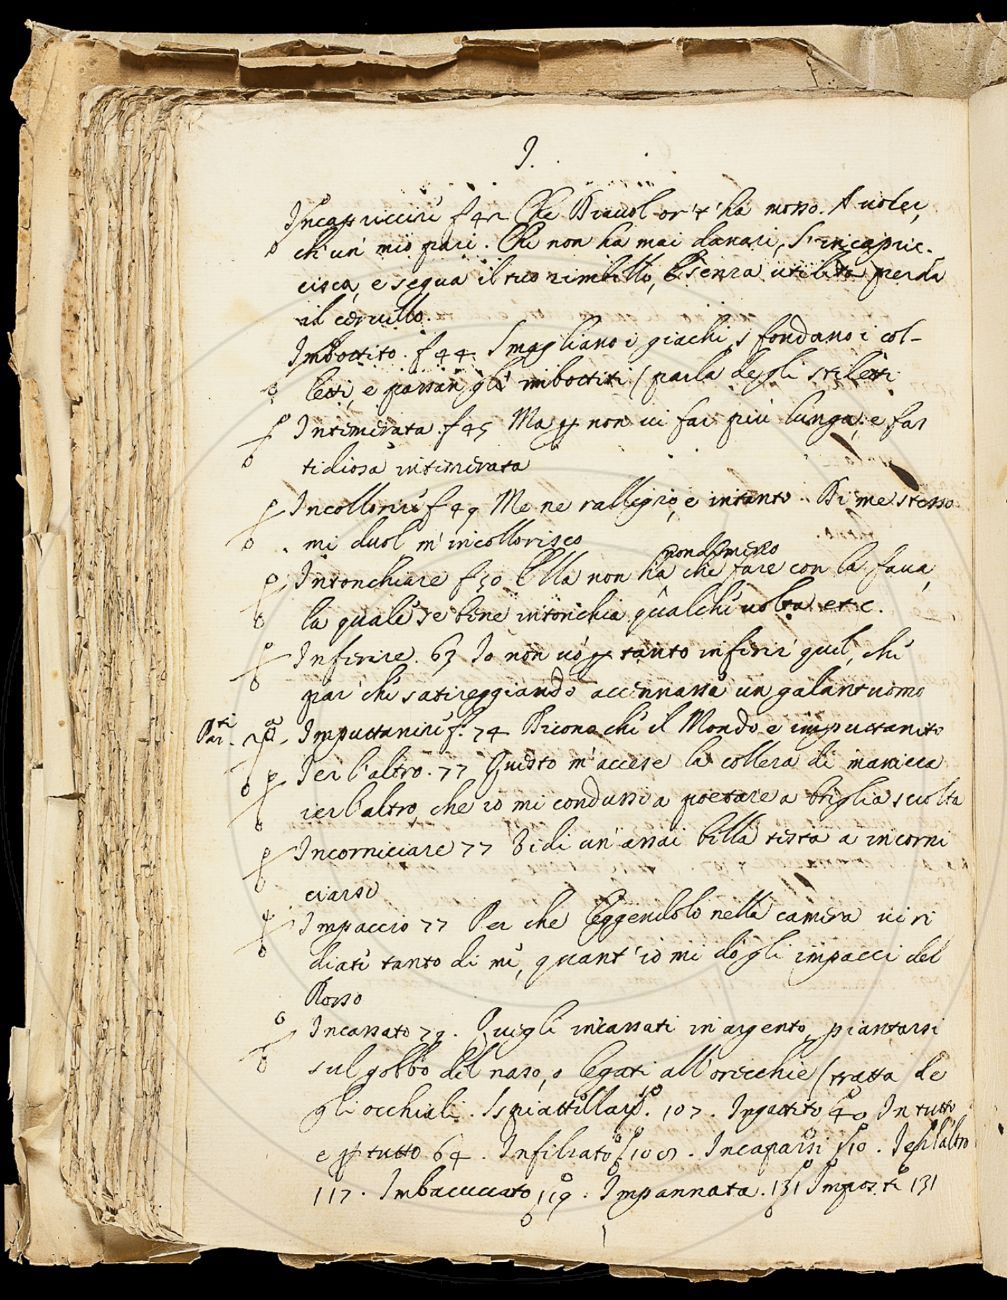 I.
Incapriccire f 42 Che Diavol or t'ha mosso. A voler,
ch'un mio pari. Che non ha mai danari, S'incapric-
cisca, e segua il tuo zimbello, E senza utilità perda
il cervello.
Imbottito. f 44 Smagliano i giachi, sfondano i col-
letti, e passan gl'imbottiti (parla degli stiletti
Intemerata. f 45 Ma p non vi far più lunga, e fas
tidiosa intemerata
Incollorire f 49 Me ne rallegro, e intanto. Di me stesso
mi duol m'incollorisco
Intonchiare f 50 Ella non ha che fare con la fava,
nondimeno
la quale se bene intonchia qualche volta etc.
Inferire. 63 Io non vo p tanto inferir quel, che
par che satireggiando accennasse un galantuomo
Par.te Imputtanire f. 74 Dicono che il Mondo è imputtanito
Ier l'altro. 77 Questo m'accese la collera di maniera
ier l'altro, che io mi condussi a poetare a briglia sciolta
Incorniciare 77 Vidi un'assai bella testa a incorni
ciarsi
Impaccio 77 Per che leggendolo nella camera vi ri
diate tanto di me, quant'io mi do gli impacci del
Rosso
Incassato 79. Quegli incassati in argento, piantarsi
sul gobbo del naso, o legati all'orecchie (tratta de
gli occhiali. 107. In tutto
e p tutto 64. Infilzato 100. Incaparsi 110. Ier l'altro
117. Imbacuccato 119. Impannata. 131 Imposte 131